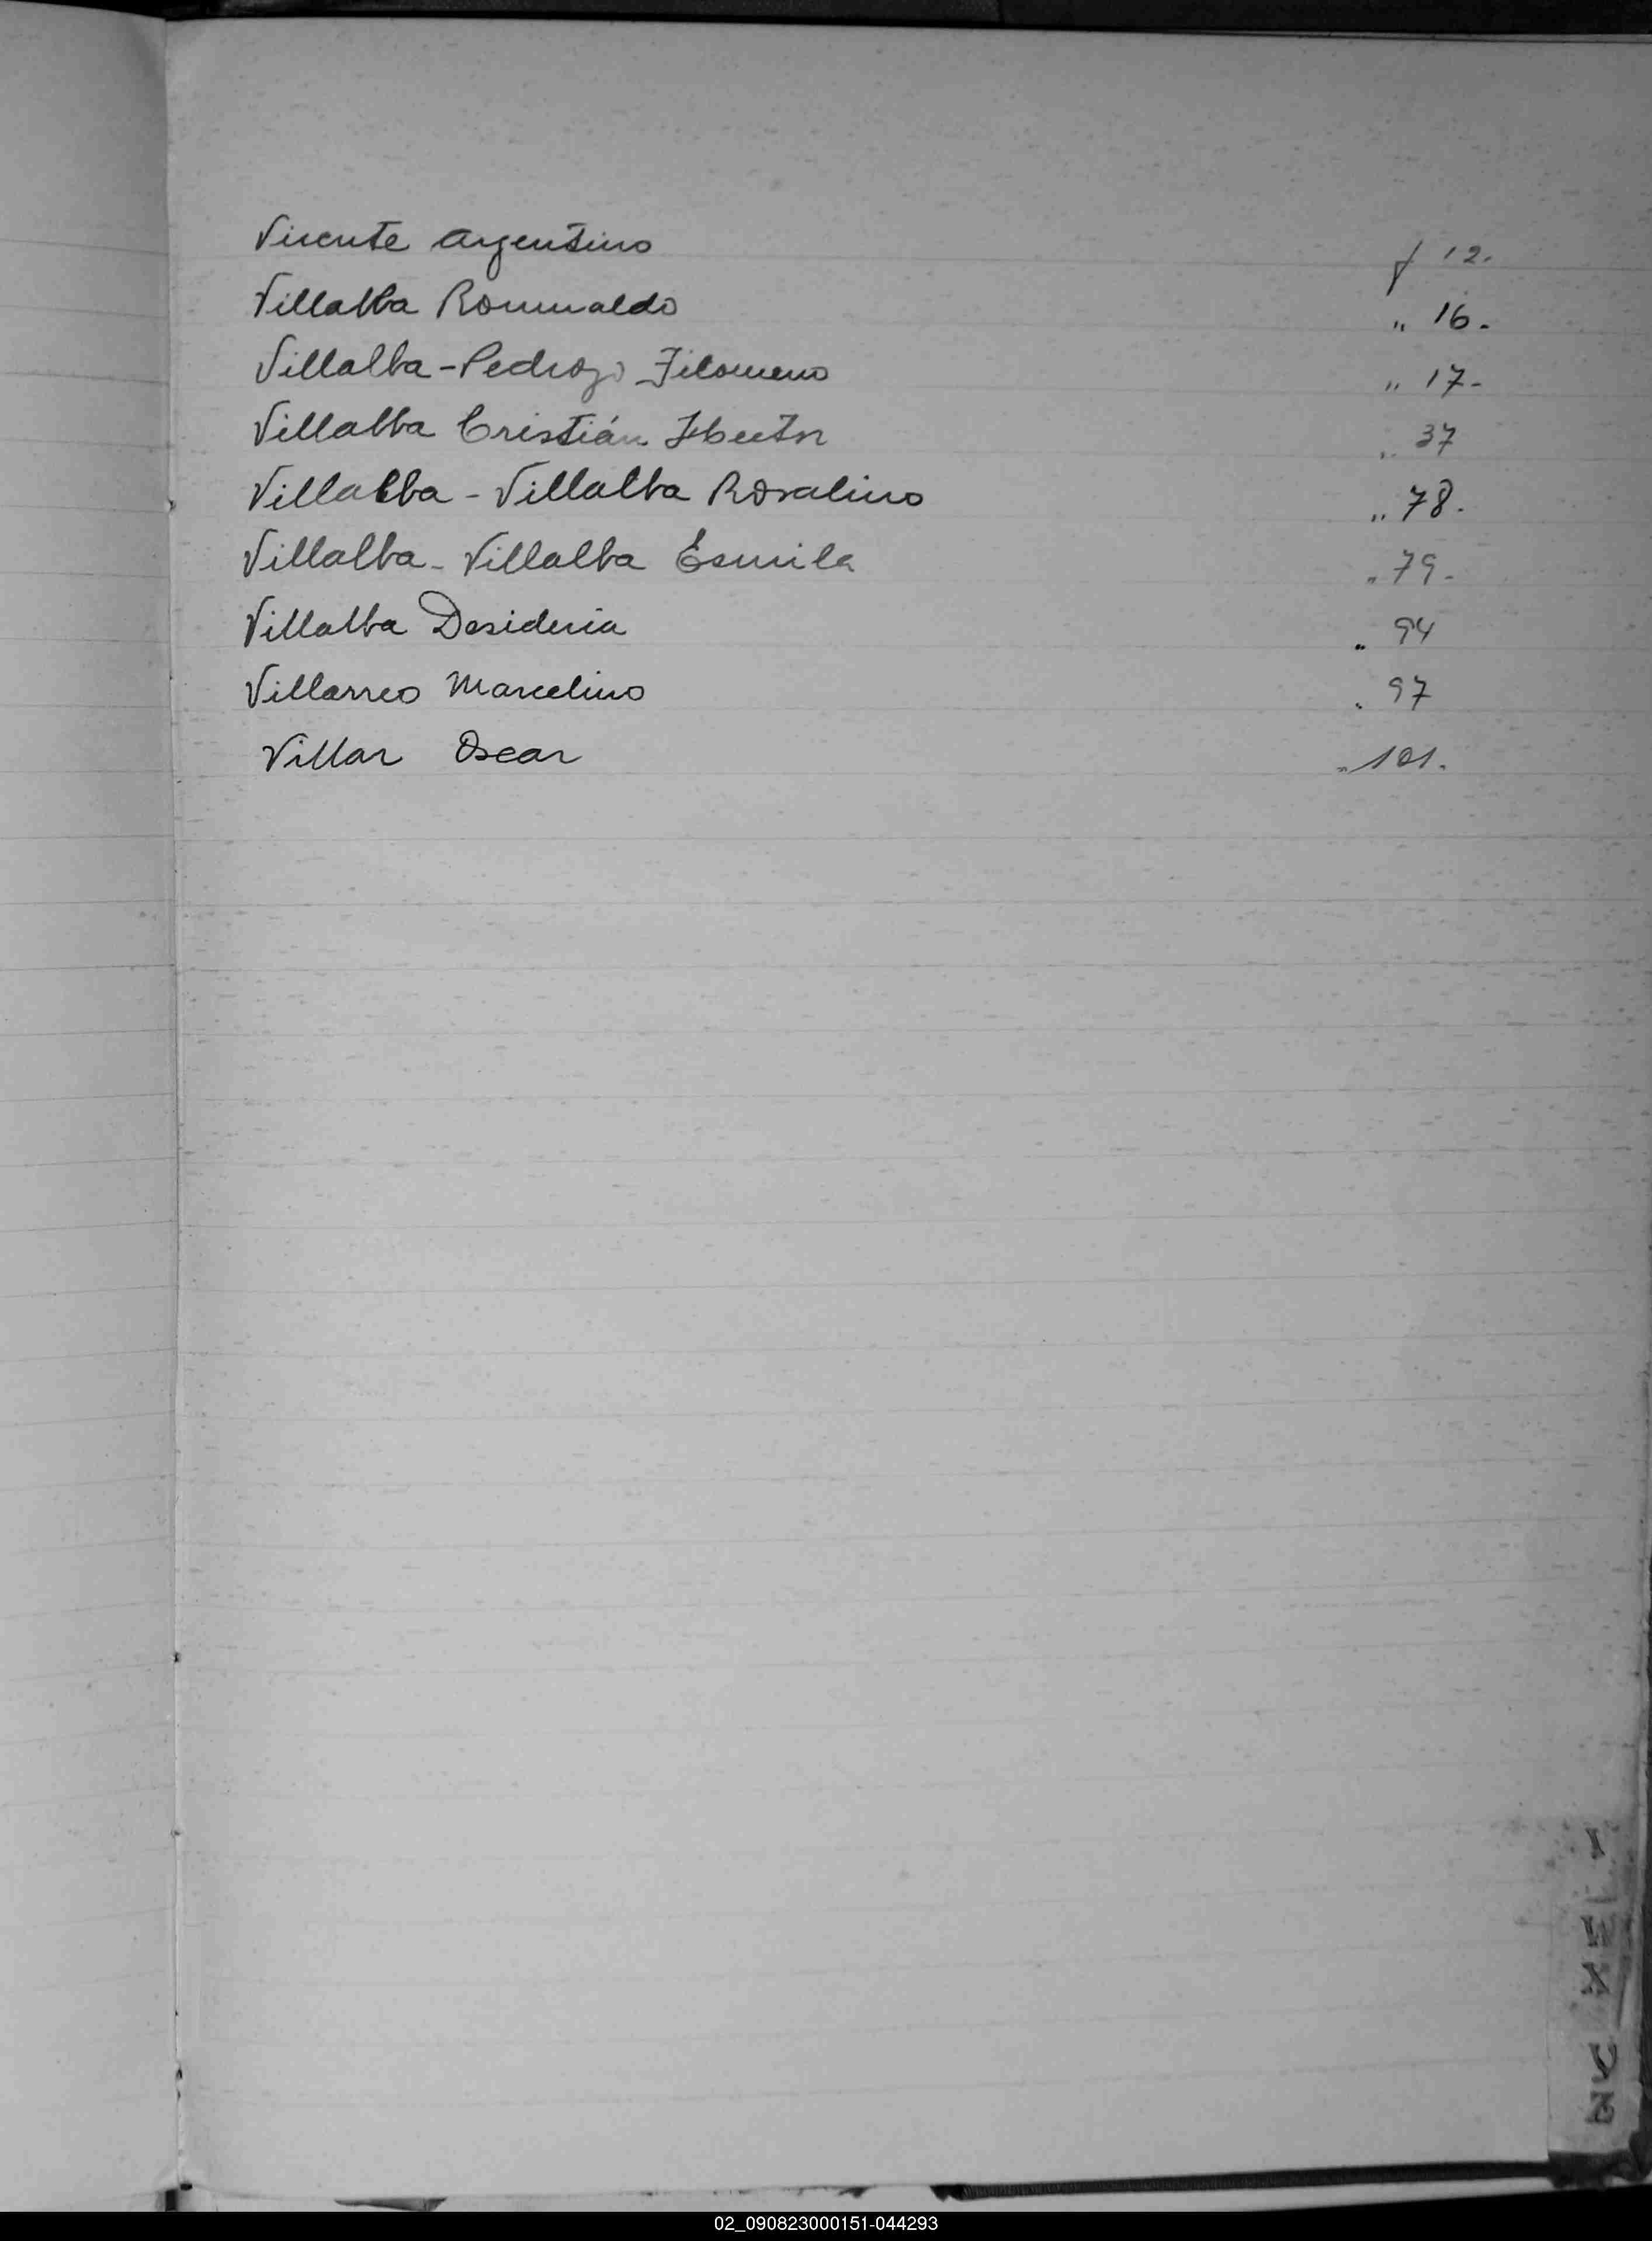 Vicente Argentino f 12.
Villalba Romualdo " 16.
Villalba-Pedrozo Filomeno " 17-
Villalba Cristián Hector " 37
Villalba - Villalba Rosalino " 78.
Villalba - Villalba Esmila " 79-
Villalba Desideria " 94
Villarreo Marcelino " 97
Villar Oscar " 101.
02_090823000151-044293